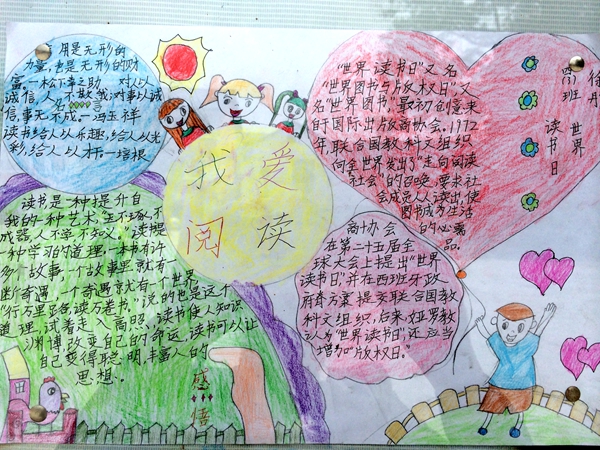 用是无形的
力量,也是无形的财
富。—松下幸之助
对人以
诚信,人不欺我;对事以诚
信,事无不成。—冯玉祥
名言
读书给人以乐趣,给人以光
彩,给人以才干。—培根
我爱
阅读
读书是一种提升自
我的一种艺术。玉不琢不
成器,人不学不知义。读书是
一种学习的道理。一本书有许
多个故事,一个故事里就有
断奇遇,一个奇遇就有一个世界
"行万里路,读万卷书"说的也是这个
道理,试着走入高照、读书使人知识
渊博,改变自己的命运,读书可以让
自己变得聪明,丰富人的
思想。
感
悟
"世界读书日"又名
"世界图书与版权日"又
名"世界图书"。最初创意来
自于国际出版商协会。1972
年联合国教科文组织
向全世界发出了"走向阅读
社会"的召唤,要求社
会成员人人读出,使
图书成为生活
的必需
品。
世界
读书日
商协会
在第二十五届全
球大会上提出"世界
读书日",并在西班牙政
府奇方案提交联合国教
科文组织,后来,亚罗教
认为"世界读书日",还应当
增加"版权日。"